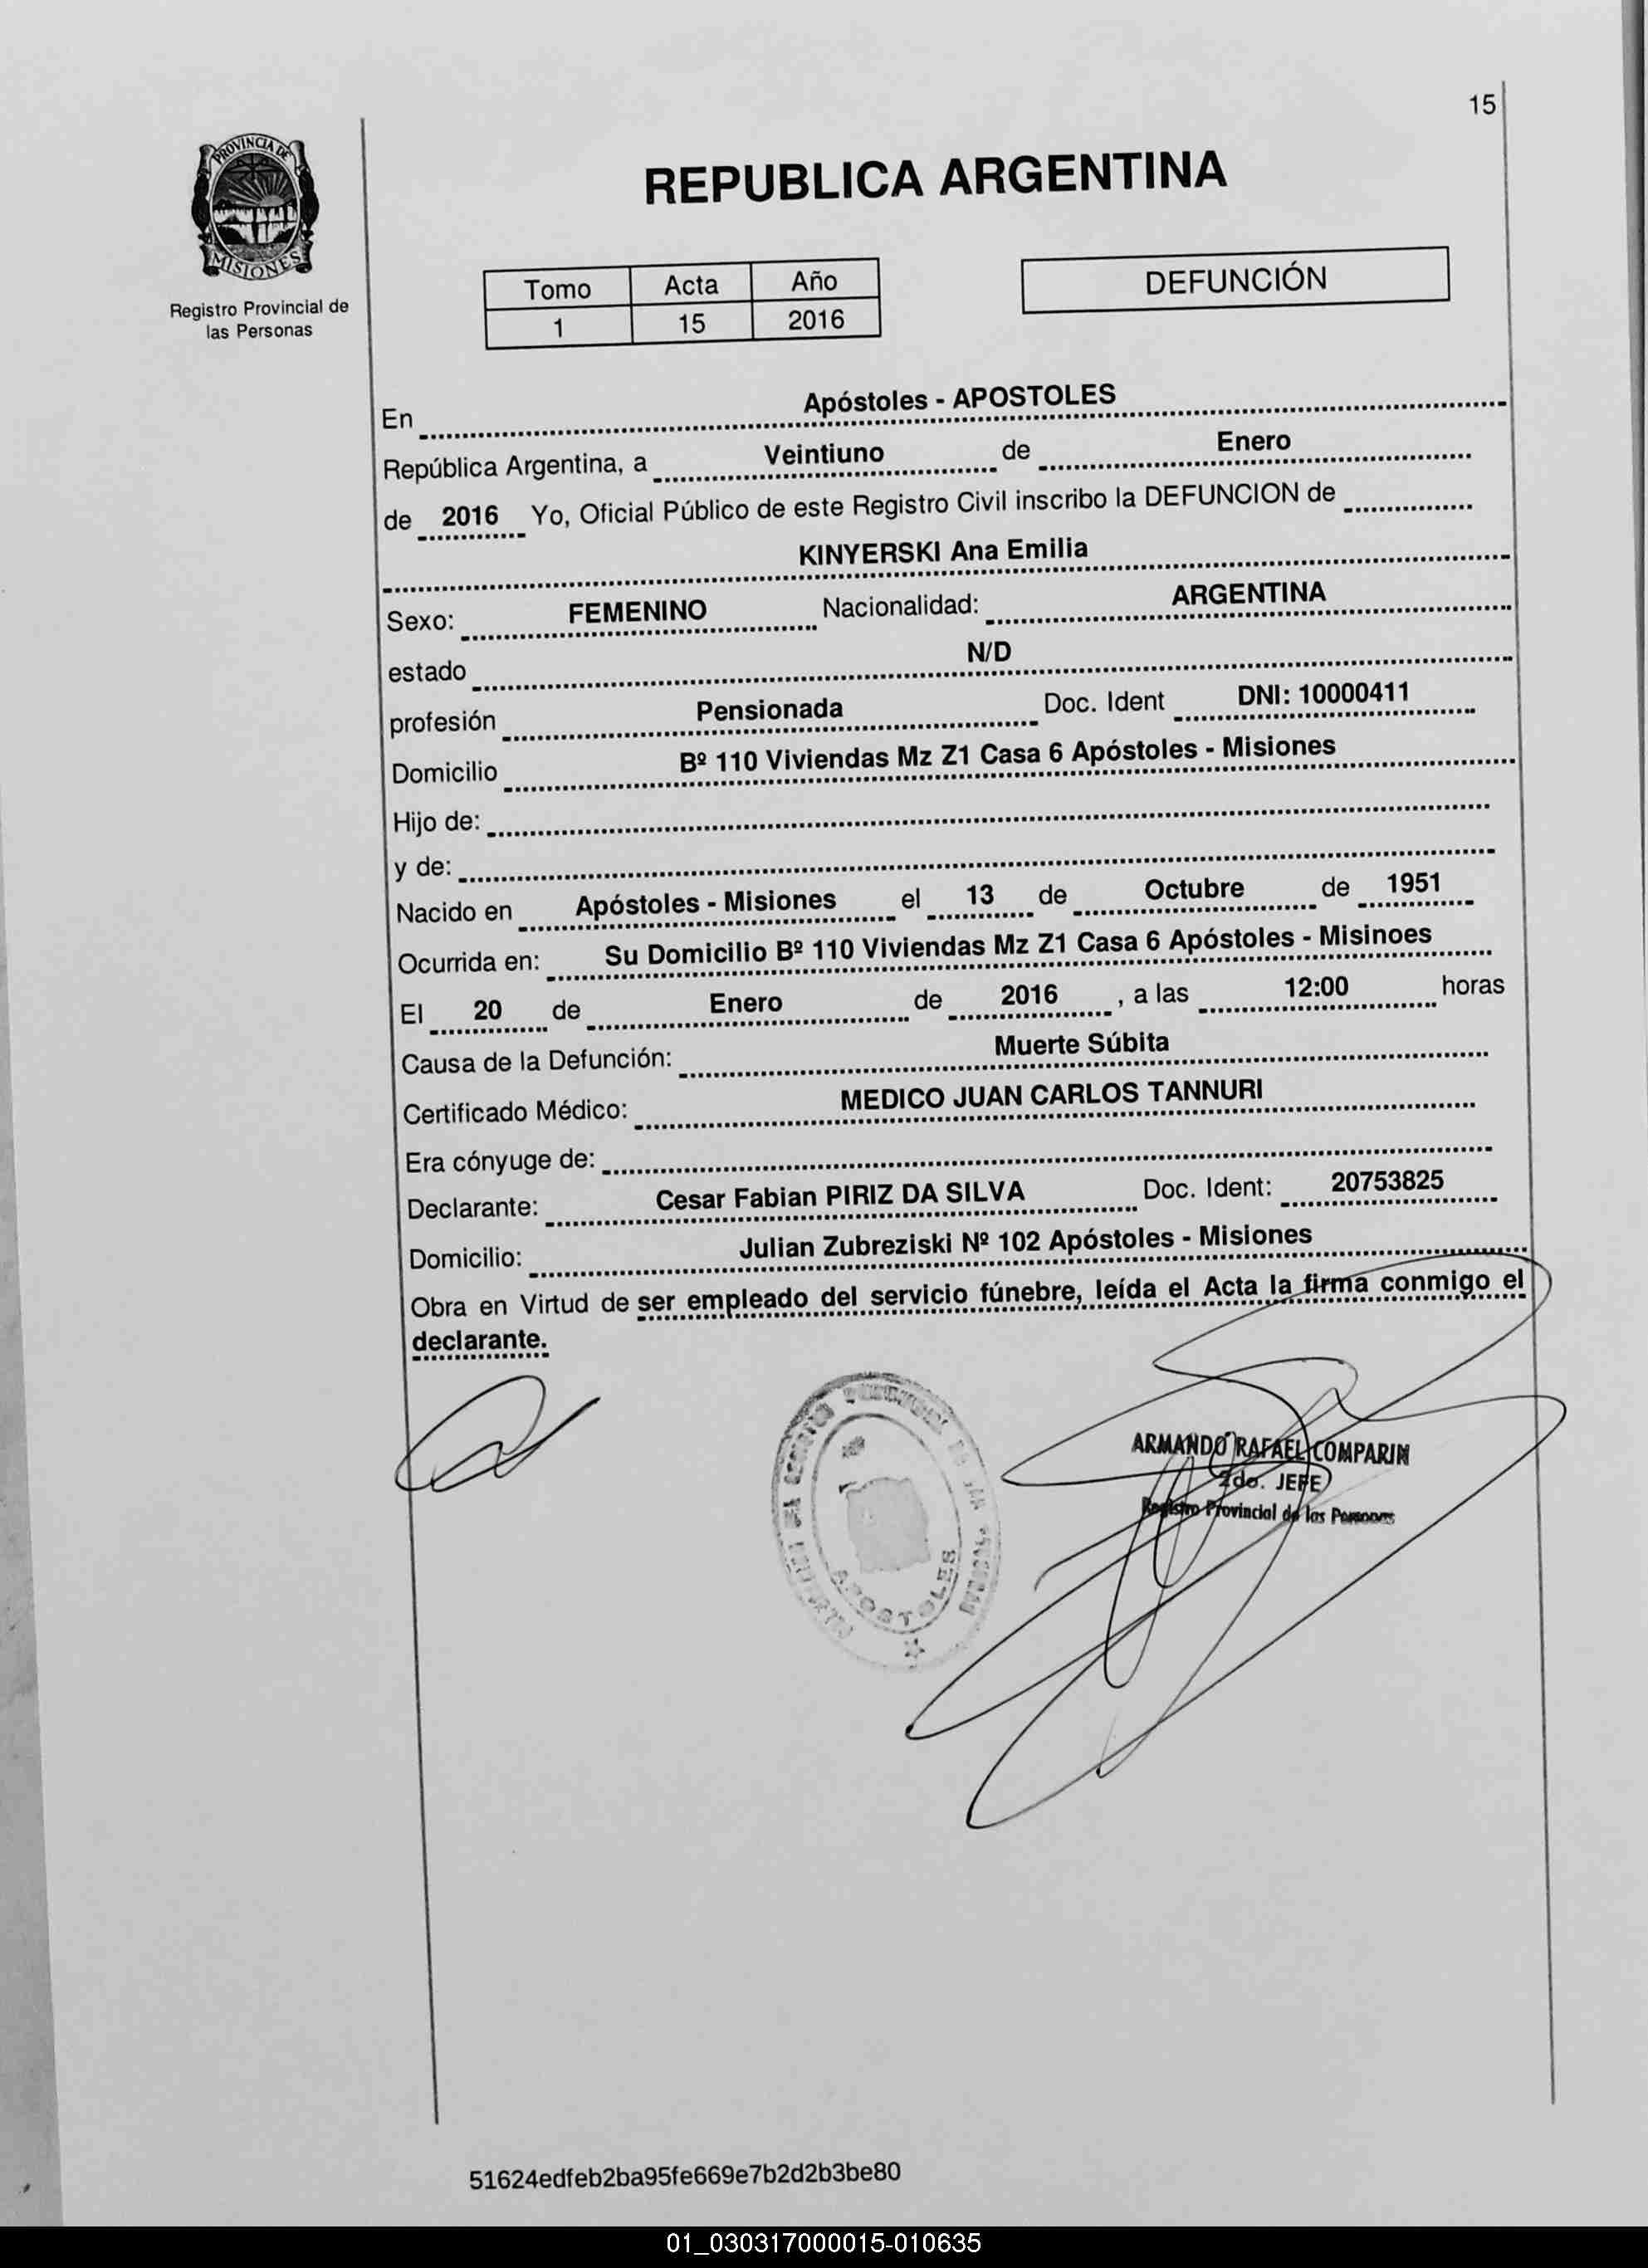 15
PROVINCIA DE
MISIONES
Registro Provincial de
las Personas
REPUBLICA ARGENTINA
Tomo Acta Año
1 15 2016
DEFUNCIÓN
En Apóstoles - APOSTOLES
República Argentina, a Veintiuno de Enero
de 2016 Yo, Oficial Público de este Registro Civil inscribo la DEFUNCION de
KINYERSKI Ana Emilia
Sexo: FEMENINO Nacionalidad: ARGENTINA
estado N/D
profesión Pensionada Doc. Ident DNI: 10000411
Domicilio Bº 110 Viviendas Mz Z1 Casa 6 Apóstoles - Misiones
Hijo de:
y de:
Nacido en Apóstoles - Misiones el 13 de Octubre de 1951
Ocurrida en: Su Domicilio Bº 110 Viviendas Mz Z1 Casa 6 Apóstoles - Misinoes
El 20 de Enero de 2016 , a las 12:00 horas
Causa de la Defunción: Muerte Súbita
Certificado Médico: MEDICO JUAN CARLOS TANNURI
Era cónyuge de:
Declarante: Cesar Fabian PIRIZ DA SILVA Doc. Ident: 20753825
Domicilio: Julian Zubreziski Nº 102 Apóstoles - Misiones
Obra en Virtud de ser empleado del servicio fúnebre, leída el Acta la firma conmigo el
declarante.
APOSTOLES
ARMANDO RAFAEL COMPARIN
2do. JEFE
Registro Provincial de las Personas
51624edfeb2ba95fe669e7b2d2b3be80
01_030317000015-010635